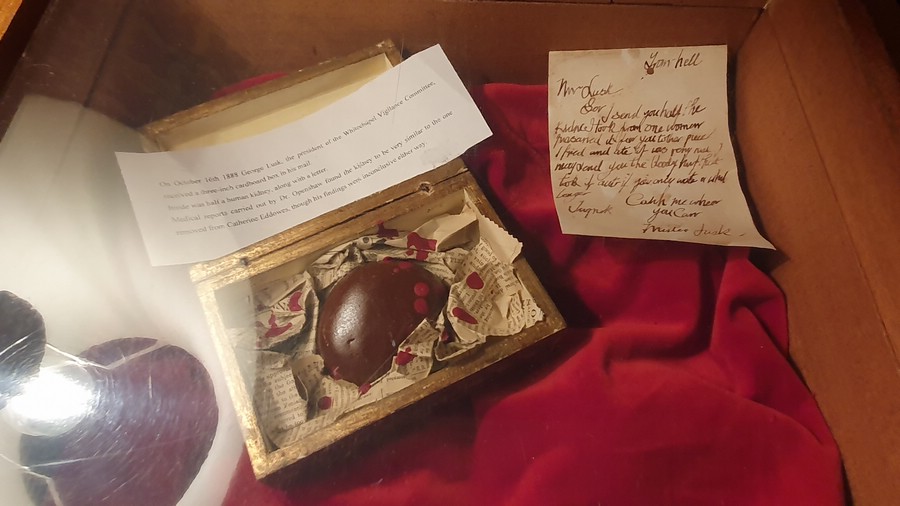 On October 16th 1888 George Lusk, the president of the Whitechapel Vigilance Committee,
received a three-inch cardboard box in his mail.
Inside was half a human kidney, along with a letter.
Medical reports carried out by Dr. Openshaw found the kidney to be very similar to the one
removed from Catherine Eddowes, though his findings were inconclusive either way.
From hell
Mr Lusk
Sor
I send you half the
Kidne I took from one women
prasarved it for you tother piece
I fried and ate it was very nise I
may send you the bloody knif that
took it out if you only wate a whil
longer
Signed Catch me when
you Can
Mister Lusk